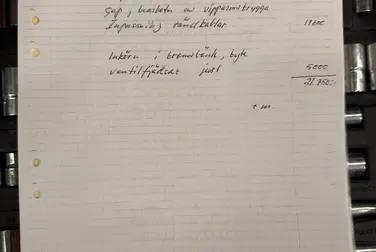 gap, bearbetn av vipparmsbrygga
Inpassning tändkablar
Inkörn i bromsbänk, byte
ventilfjädrar just 5000
21.750:-
+ m